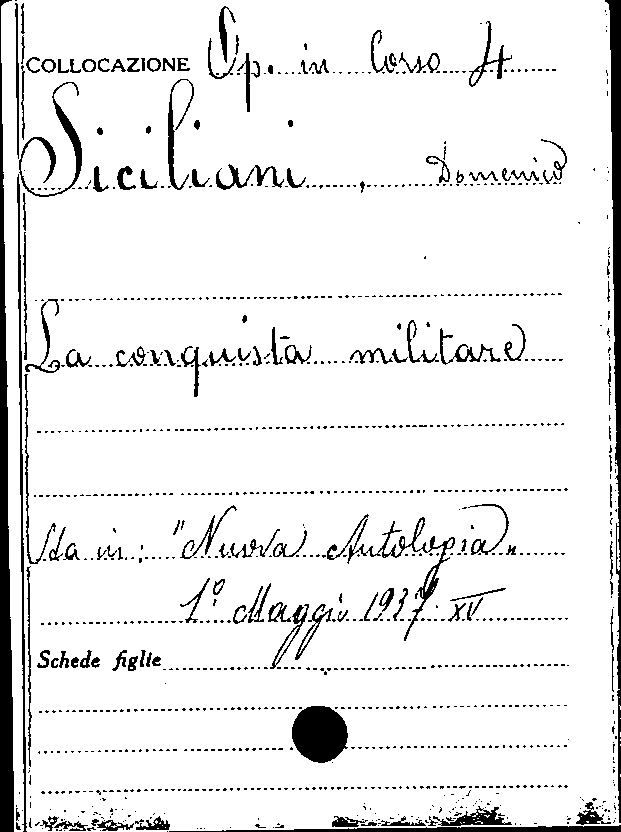 COLLOCAZIONE Op. in Corso 4
Siciliani, Domenico
La conquista militare
Sta in: "Nuova Antologia"
1º Maggio 1937. XV
Schede figlie